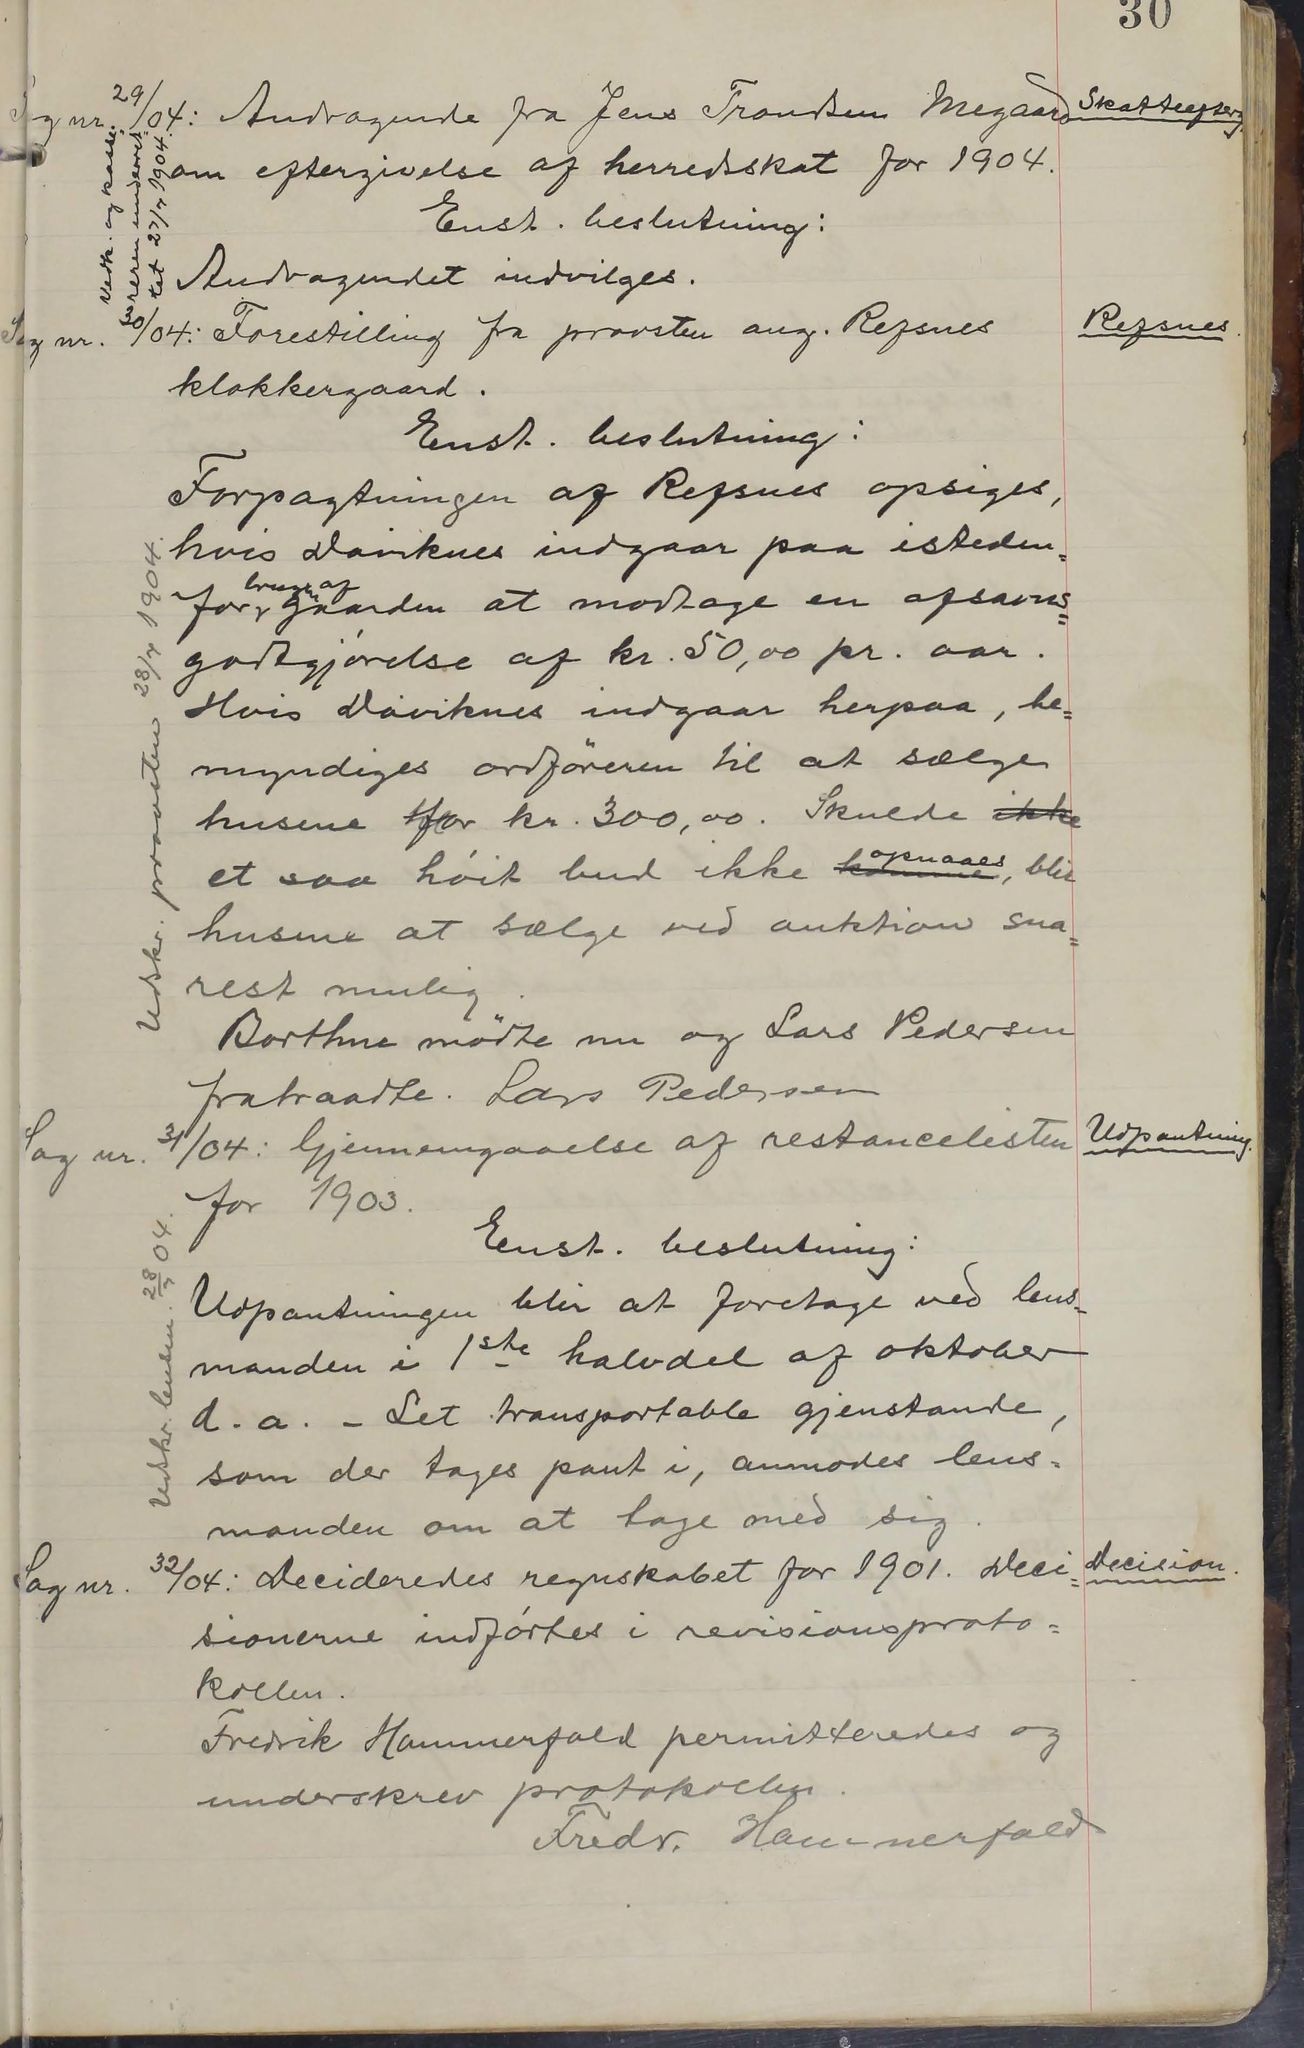 30
Sag nr. 29/04: Andragende fra Jens Trondsen Megaard Skatteefterg.
om eftergivelse af herredsskat for 1904.
Enst. beslutning:
Andragendet indvilges.
Vedk. og kasse-
reren underret-
tet 27/7 1904.
Sag nr. 30/04: Forestilling fra provsten ang. Refsnes Refsnes.
klokkergaard.
Enst. beslutning:
Forpagtningen af Refsnes opsiges,
hvis Daviknes indgaar paa isteden=
for brugen af gaarden at modtage en afsavns=
godtgjörelse af kr. 50,00 pr. aar.
Hvis Daviknes indgaar herpaa, be=
myndiges ordföreren til at sælge
husene for kr. 300,00. Skulde ikke
et saa höit bud ikke komme opnaaes, blir
husene at sælge ved auktion sna=
rest mulig.
Udskr. provsten 28/7 1904.
Borthne mödte nu og Lars Pedersen
fratraadte. Lars Pedersen
Sag nr. 31/04: Gjennemgaaelse af restancelisten Udpantning.
for 1903.
Enst. beslutning:
Udpantningen blir at foretage ved lens-
manden i 1ste halvdel af oktober
d. a. - Let transportable gjenstande,
som der tages pant i, anmodes lens-
manden om at tage med sig.
Udskr. lensm. 28/7 04.
Sag nr. 32/04: Decideredes regnskabet for 1901. Deci= Decision.
sionerne indförtes i revisionsproto=
kollen.
Fredrik Hammerfald permitteredes og
underskrev protokollen.
Fredr. Hammerfald